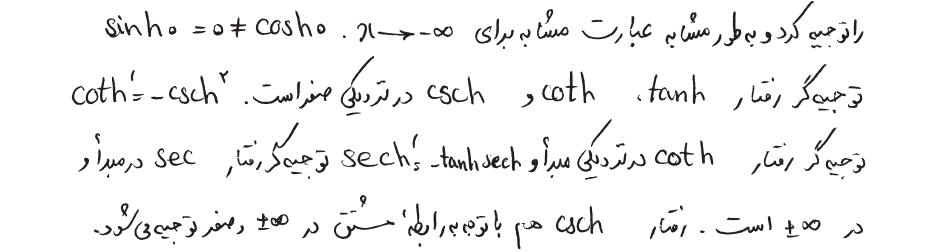 را توجیه کرد و به طور مشابه عبارت مشابه برای x → -∞ . sinh0 = 0 ≠ cosh0
توجیه‌گر رفتار tanh ، coth و csch در نزدیکی صفر است. coth' = -csch²
توجیه‌گر رفتار coth در نزدیکی مبدأ و sech' = -tanh sech توجیه‌گر رفتار sec در مبدأ و
در ±∞ است. رفتار csch هم با توجه به رابطهٔ مشتق در ±∞ و صفر توجیه می‌شود.